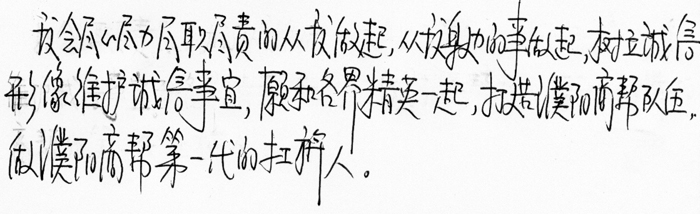 我会尽心尽力尽职尽责的从我做起,从我身边的事做起,树立诚信
形像维护诚信事宜,愿和各界精英一起,打造濮阳商帮队伍,
做濮阳商帮第一代的扛旗人。